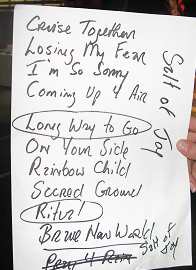 Cruise Together
Losing My Fear
I'm So Sorry
Coming Up 4 Air
Long Way to Go
On Your Side
Rainbow Child
Sacred Ground
Ritual
Brave New World
Pray 4 Rain
Salt of Joy
Salt of Joy